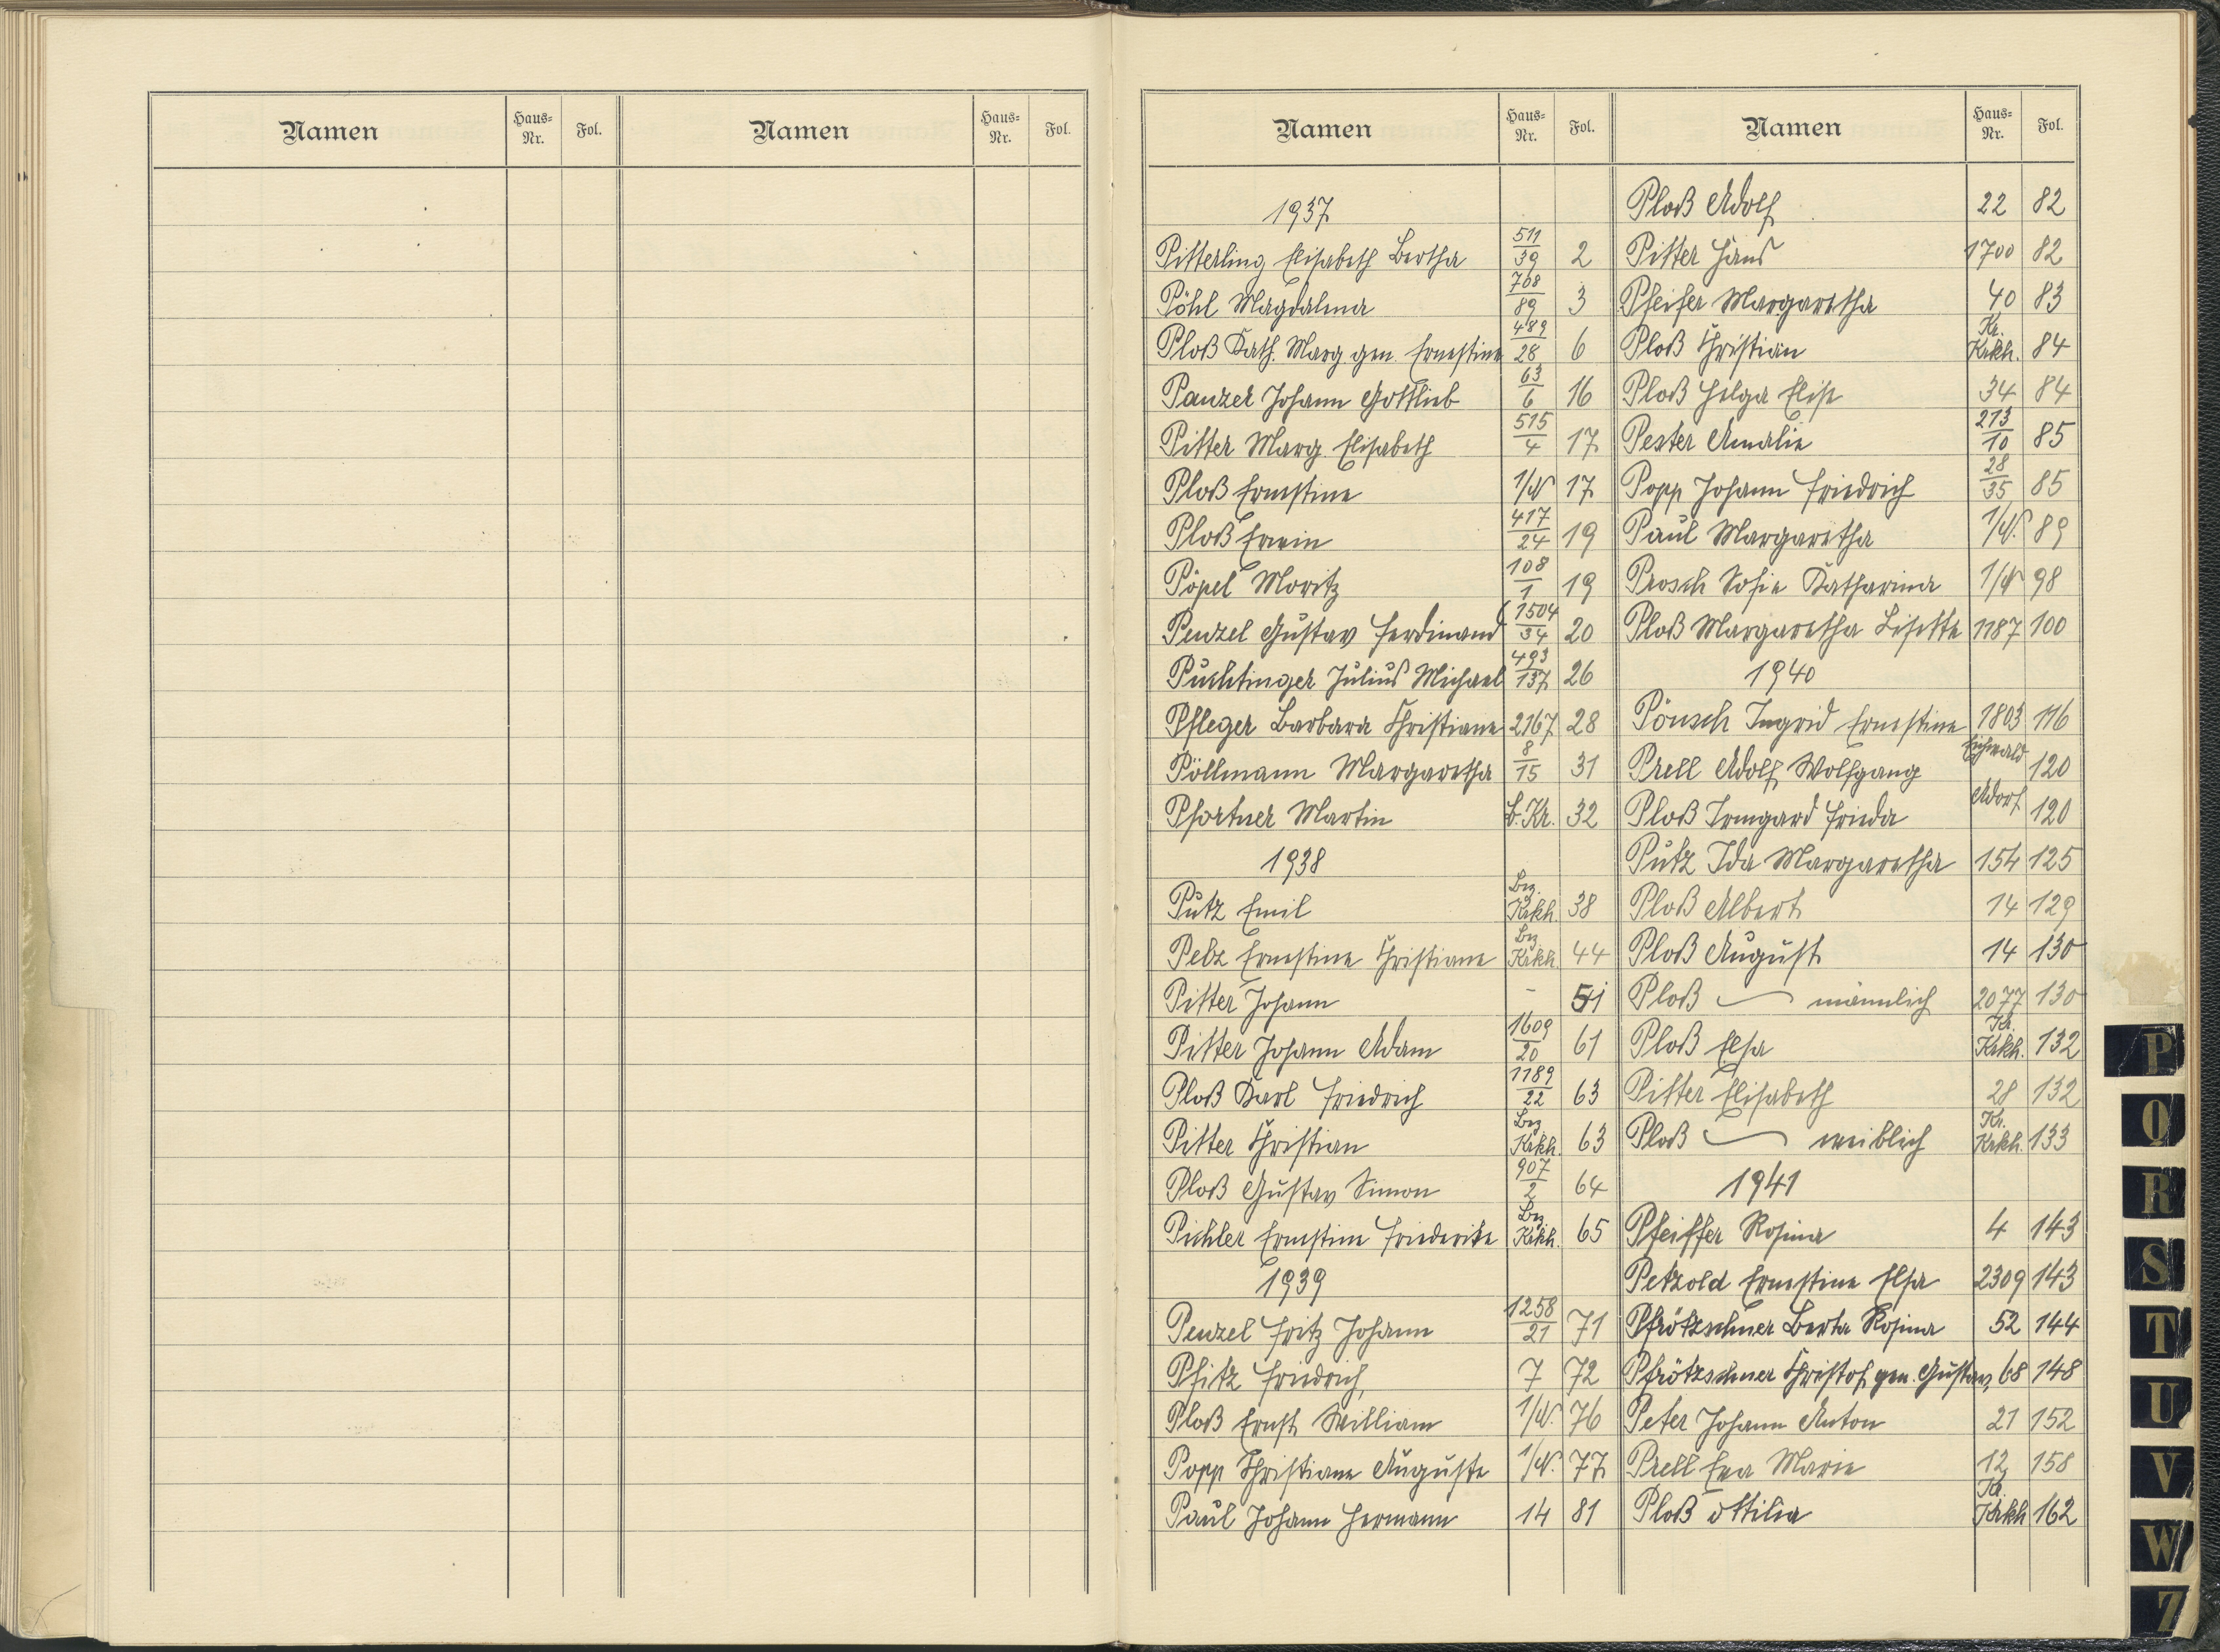 Namen Haus-Nr. Fol. Namen Haus-Nr. Fol.
Namen Haus-Nr. Fol.
1937
Pitterling Elisabeth Bertha 511/39 2
Pöhl Magdalena 768/89 3
Ploß Kath. Marg. gen. Ernestine 489/28 6
Panzer Johann Gottlieb 63/6 16
Pitter Marg. Elisabeth 515/4 17
Ploß Ernestine 1/N 17
Ploß Erwin 417/24 19
Pöpel Moritz 108/1 19
Penzel Gustav Ferdinand 1504/34 20
Puchtinger Julius Michael 493/137 26
Pfleger Barbara Christiane 2167 28
Pöllmann Margaretha 8/15 31
Pfortner Martin b. Kr. 32
1938
Putz Emil Bez. Krkh. 38
Pelz Ernestine Christiane Bez. Krkh. 44
Pitter Johann - 51
Pitter Johann Adam 1609/20 61
Ploß Karl Friedrich 1189/22 63
Pitter Christian Bez. Krkh. 63
Ploß Gustav Simon 907/2 64
Pichler Ernestine Friederike Bez. Krkh. 65
1939
Penzel Fritz Johann 1258/21 71
Pfitz Friedrich 7 72
Ploß Ernst William 1/N. 76
Popp Christiane Auguste 1/N. 77
Paul Johann Hermann 14 81
Namen Haus-Nr. Fol.
Ploß Adolf 22 82
Pitter Hans 1700 82
Pfeifer Margaretha 40 83
Ploß Christian Kr. Krkh. 84
Ploß Helga Elise 34 84
Pester Amalie 213/10 85
Popp Johann Friedrich 28/35 85
Paul Margaretha 1/N. 89
Prosch Sofie Katharina 1/N 98
Ploß Margaretha Lisette 1187 100
1940
Pönsch Ingrid Ernestine 1803 116
Prell Adolf Wolfgang Eichwald 120
Ploß Irmgard Frieda Adorf 120
Putz Ida Margaretha 154 125
Ploß Albert 14 129
Ploß August 14 130
Ploß — männlich 2077 130
Ploß Elsa Kr. Krkh. 132
Pitter Elisabeth 28 132
Ploß — weiblich Kr. Krkh. 133
1941
Pfeiffer Rosina 4 143
Petzold Ernestine Elsa 2309 143
Pfrötzschner Berta Rosina 52 144
Pfrötzschner Christof gen. Gustav, 68 148
Peter Johann Anton 21 152
Prell Eva Marie 12 158
Ploß Ottilia Kr. Krkh 162
P
Q
R
S
T
U
V
W
Z